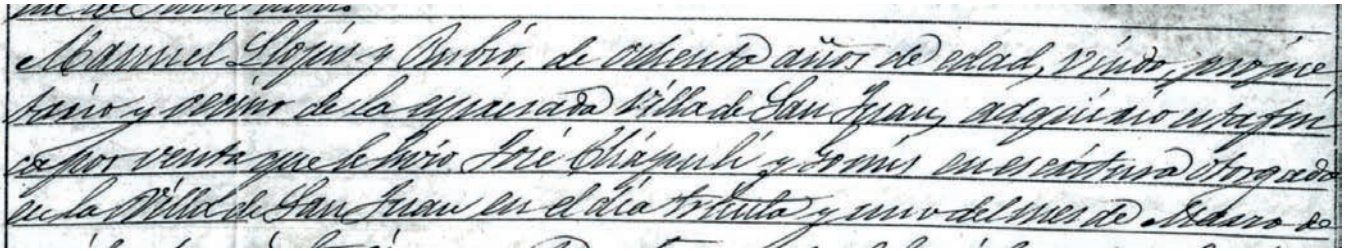 Manuel Llopis y Rubió, de ochenta años de edad, viudo, propie
tario y vecino de la expresada Villa de San Juan, adquirio esta fin
ca por venta que le hizo José Chápuli y en escritura otorgada
en la Villa de San Juan en el dia treinta y uno del mes de Marzo de